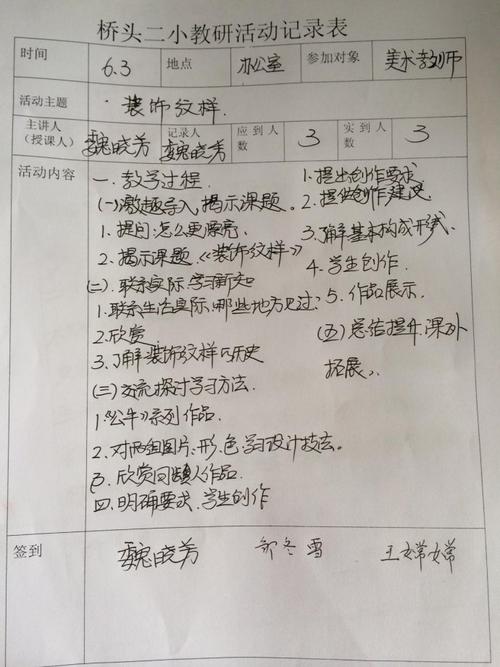 桥头二小教研活动记录表
时间 6.3 地点 办公室 参加对象 美术教师
活动主题 装饰纹样
主讲人（授课人） 魏晓芳 记录人 魏晓芳 应到人数 3 实到人数 3
活动内容
一.教学过程
(一)激趣导入,揭示课题。
1.提问:怎么更漂亮
2.揭示课题.《装饰纹样》
(二).联系实际.学习新知
1.联系生活实际,哪些地方见过:
2.欣赏
3.了解装饰纹样的历史
(三)交流探讨学习方法.
1.《公牛》系列作品.
2.对两组图片,形.色学习设计技法。
3.欣赏同龄人作品
四.明确要求.学生创作
1.提出创作要求
2.提供创作建议
3.了解基本构成形式
4.学生创作.
5.作品展示.
(五)总结提升.课外
拓展.
签到 魏晓芳 冬雪 王嫦嫦